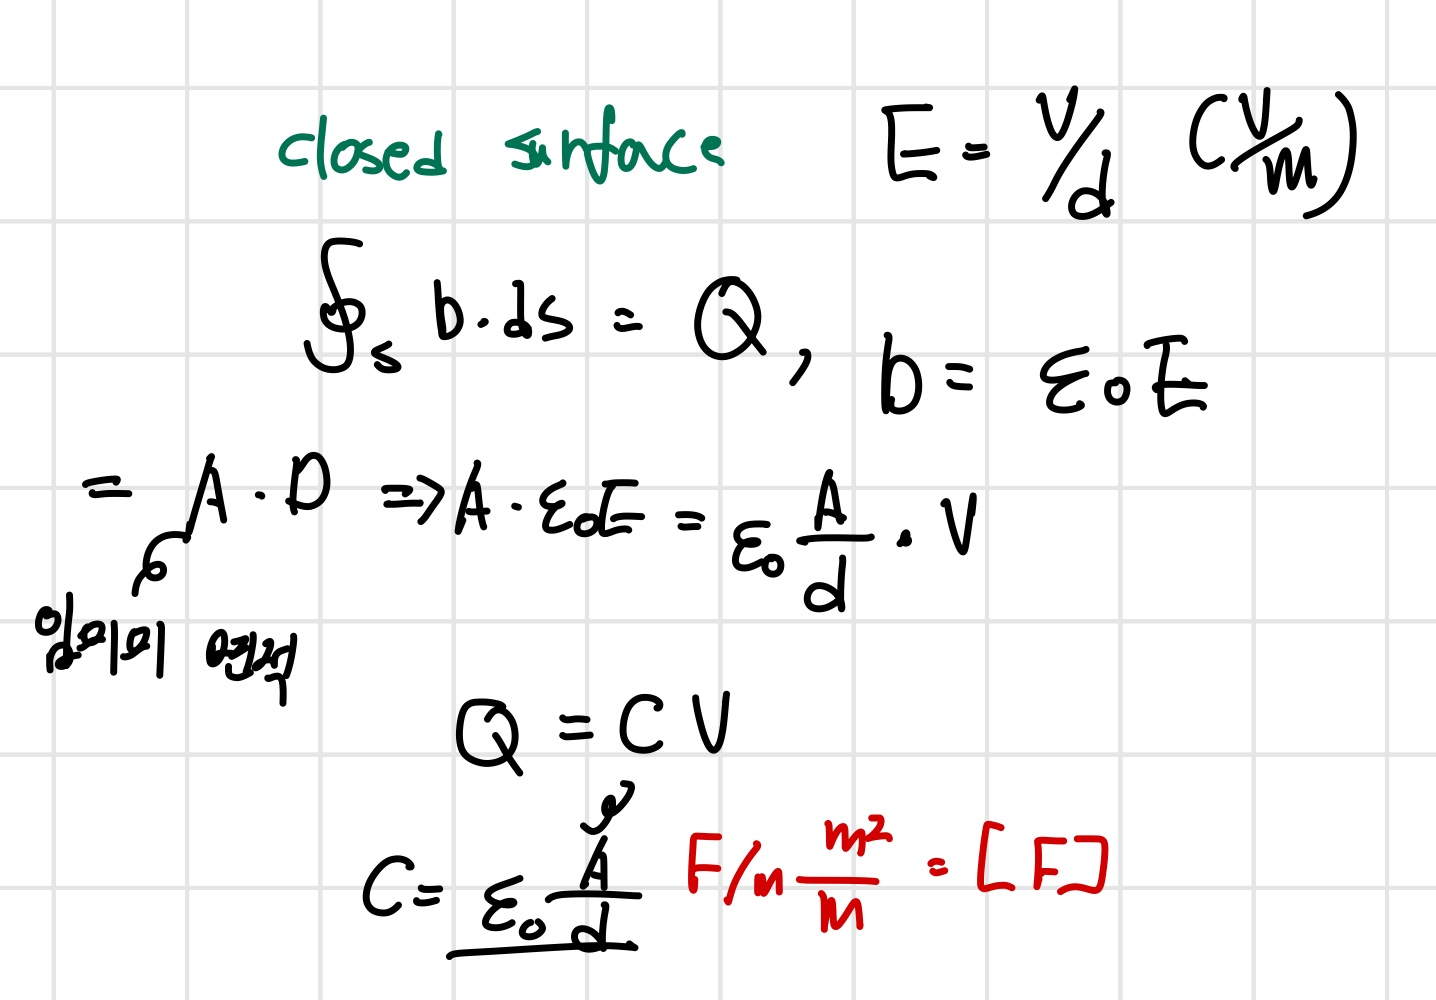 closed surface E = V/d (V/m)
∮s D·ds = Q, D = ε₀E
= A·D ⇒ A·ε₀E = ε₀ A/d · V
Q = CV
C = ε₀ A/d F/m m²/m = [F]